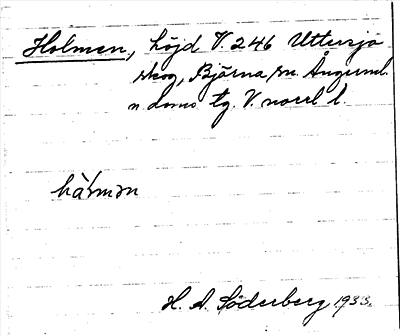 Holmen, höjd V. 246 Uttersjö
skog, Björna sn. Ångerml.
n. doms tg. V. norrl l.
hålmən
H. A. Söderberg 1933.